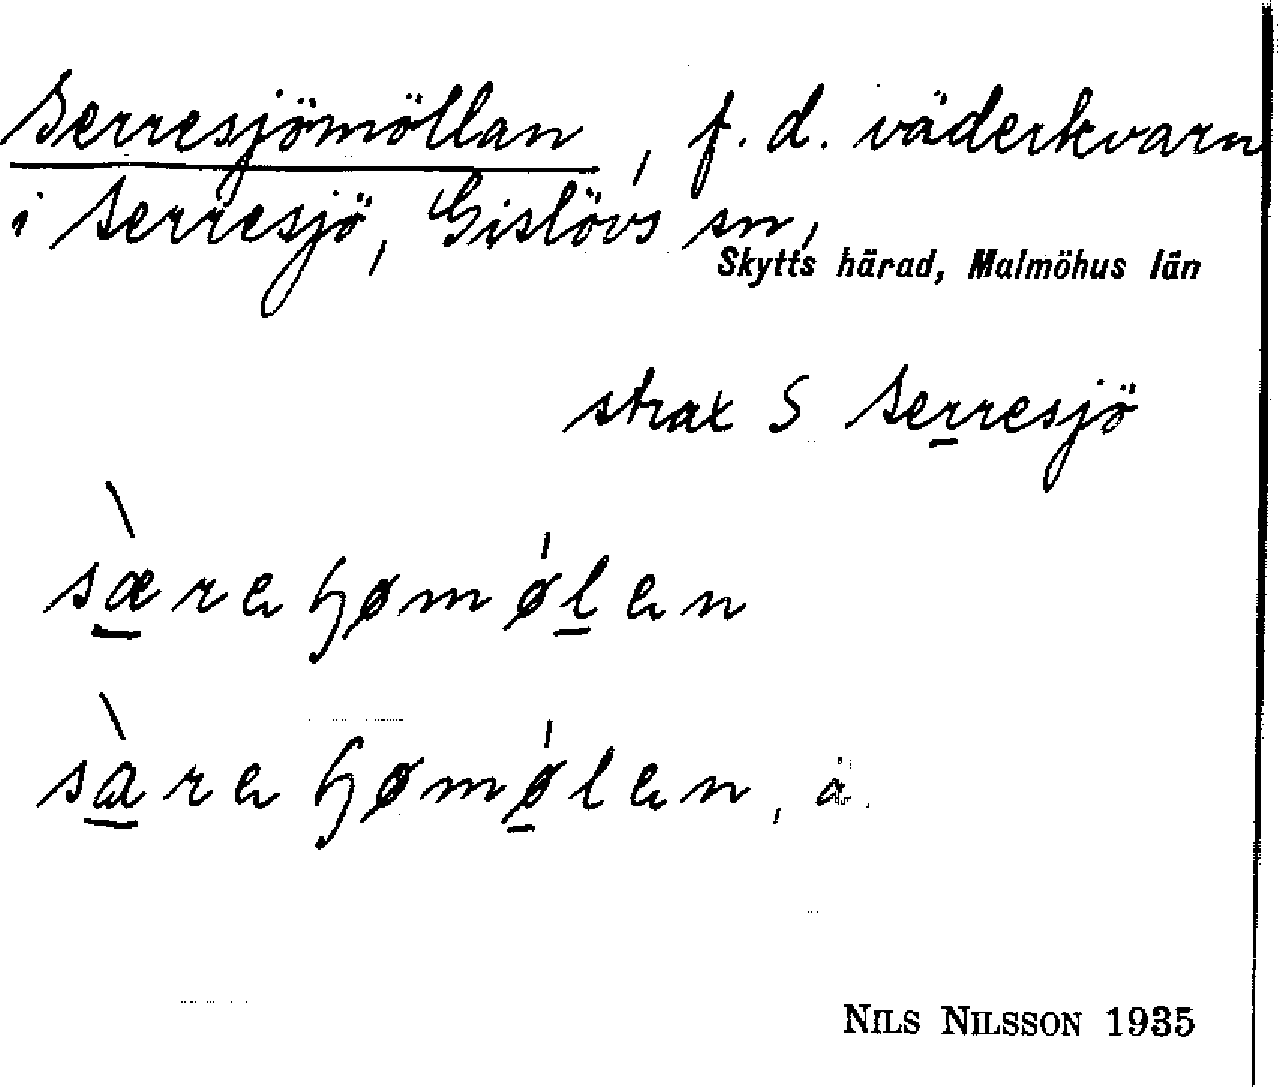 Serresjömöllan, f. d. väderkvarn
i Serresjö, Gislövs sn,
Skytts härad, Malmöhus län
strax S Serresjö
særeɧømølen
sareɧømølen, ä.
NILS NILSSON 1935